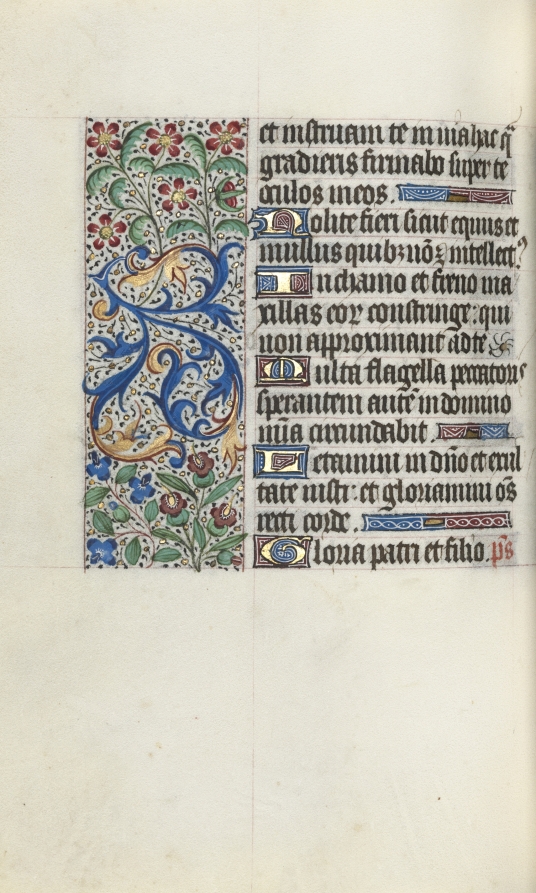 et instruam te in via hac q̄
gradieris firmabo super te
oculos meos.
Nolite fieri sicut equus et
mullus quibꝫ nō ē intellect᷒
In chamo et freno ma
xillas eoꝝ constringe: qui
non approximant ad te
Multa flagella peccatoris
sperantem autē in domino
mīa circundabit.
Letamini in dño et exul
tate iusti: et gloriamini oēs
recti corde.
Gloria patri et filio. p̄s